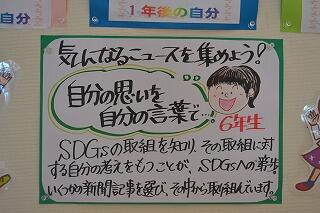 1年後の自分
気になるニュースを集めよう!
自分の思いを
自分の言葉で…!
6年生
SDGsの取組を知り、その取組に対
する自分の考えをもつことが、SDGsへの第一歩!
いくつかの新聞記事を選び、その中から取り組んでいます。